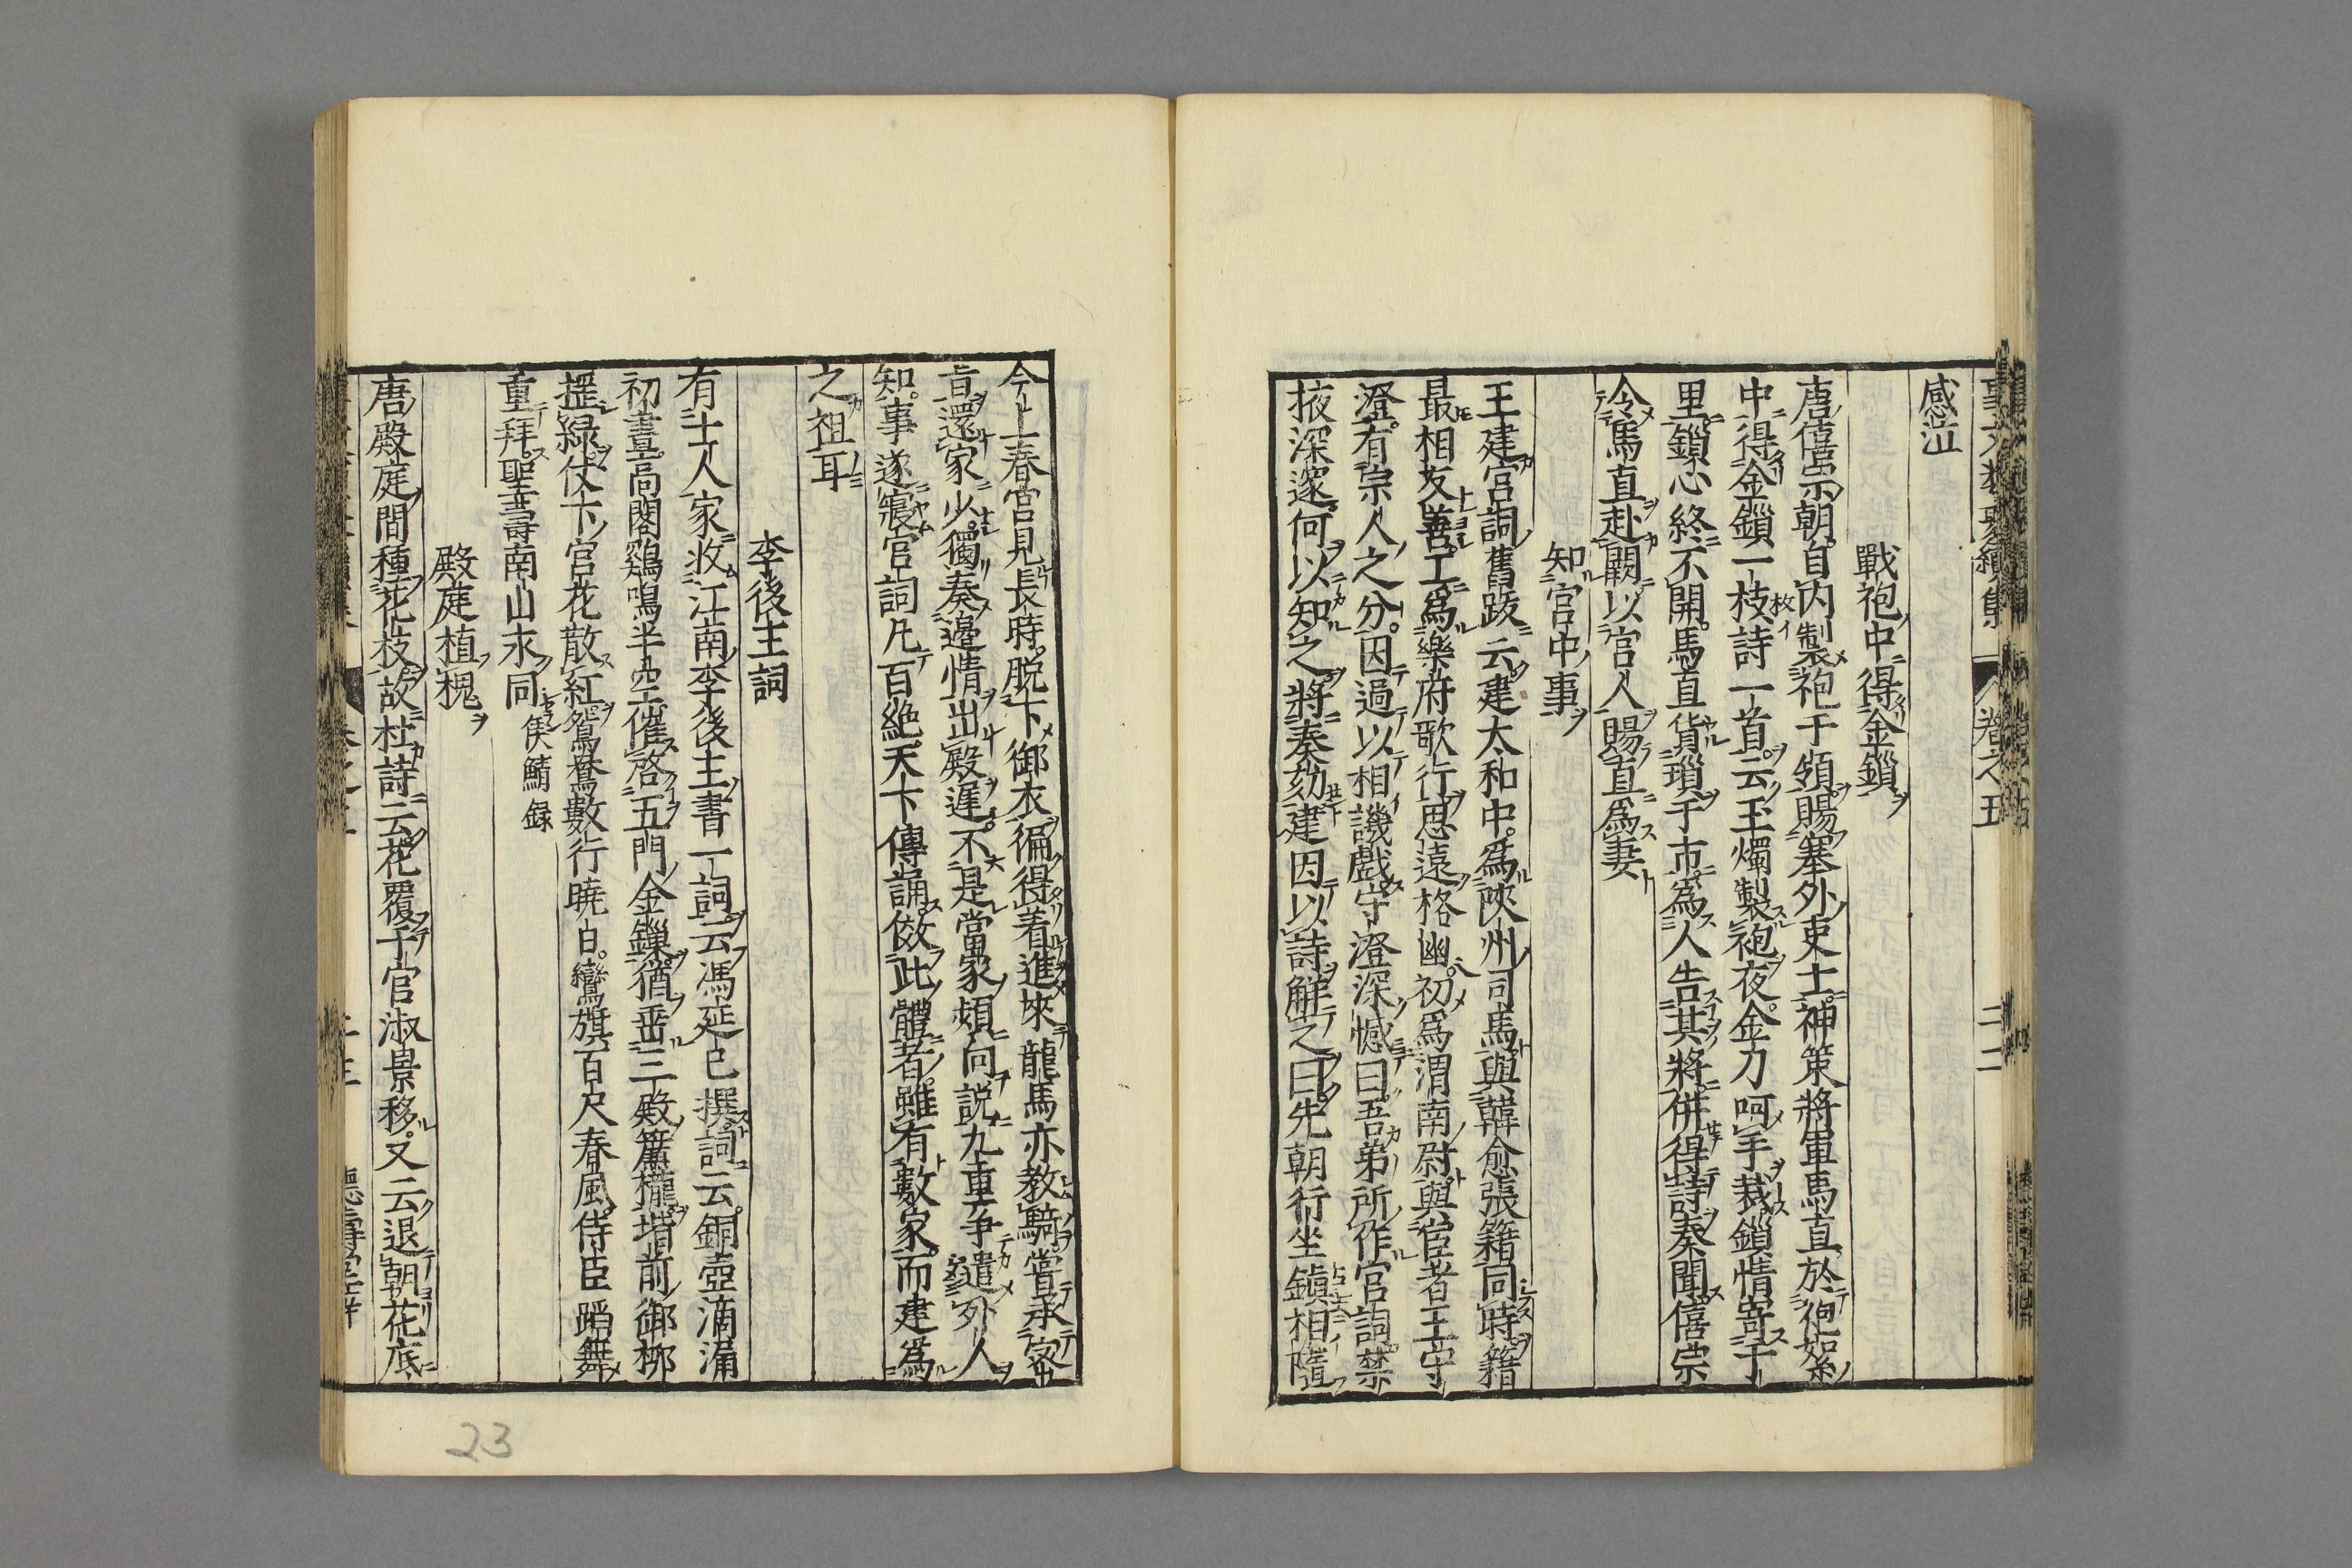 事文類聚續集 卷之五 二二
感泣
戰袍中得金鎖
唐僖宗朝自内製袍千領賜塞外吏士神策將軍馬直於袍絮
中得金鎖一枝詩一首云玉燭製袍夜金刀呵手裁鎖情寄千
里鎖心終不開馬直貨瑣于市為人告其將併得詩奏聞僖宗
令馬直赴闕以宫人賜直為妻
知宫中事
王建宫詞舊跋云建太和中為陜州司馬與韓愈張籍同時籍
最相友善工為樂府歌行思遠格幽初為渭南尉與宦者王守
澄有宗人之分因過以相譏戲守澄深憾曰吾弟所作宫詞禁
掖深邃何以知之將奏劾建因以詩解之曰先朝行坐鎮相隨
今上春宫見長時脱下御衣徧得着進來龍馬亦教騎嘗承密
旨還家少獨奏邊情出殿遲不是當家頻向説九重争遣外人
知事遂寢宫詞凡百絶天下傳誦倣此體者雖有數家而建為
之祖耳
李後主詞
有士人家收江南李後主書一詞云馮延已撰詞云銅壺滴漏
初晝高閣鷄鳴半空催啓五門金鏁猶垂三殿簾櫳堦前御栁
揺緑仗下宫花散紅鴛鴦數行曉白鸞旗百尺春風侍臣蹈舞
重拜聖壽南山永同 侯鯖録
殿庭植槐
唐殿庭間種花枝故杜詩云花覆千官淑景移又云退朝花底
二三
德壽堂梓
23